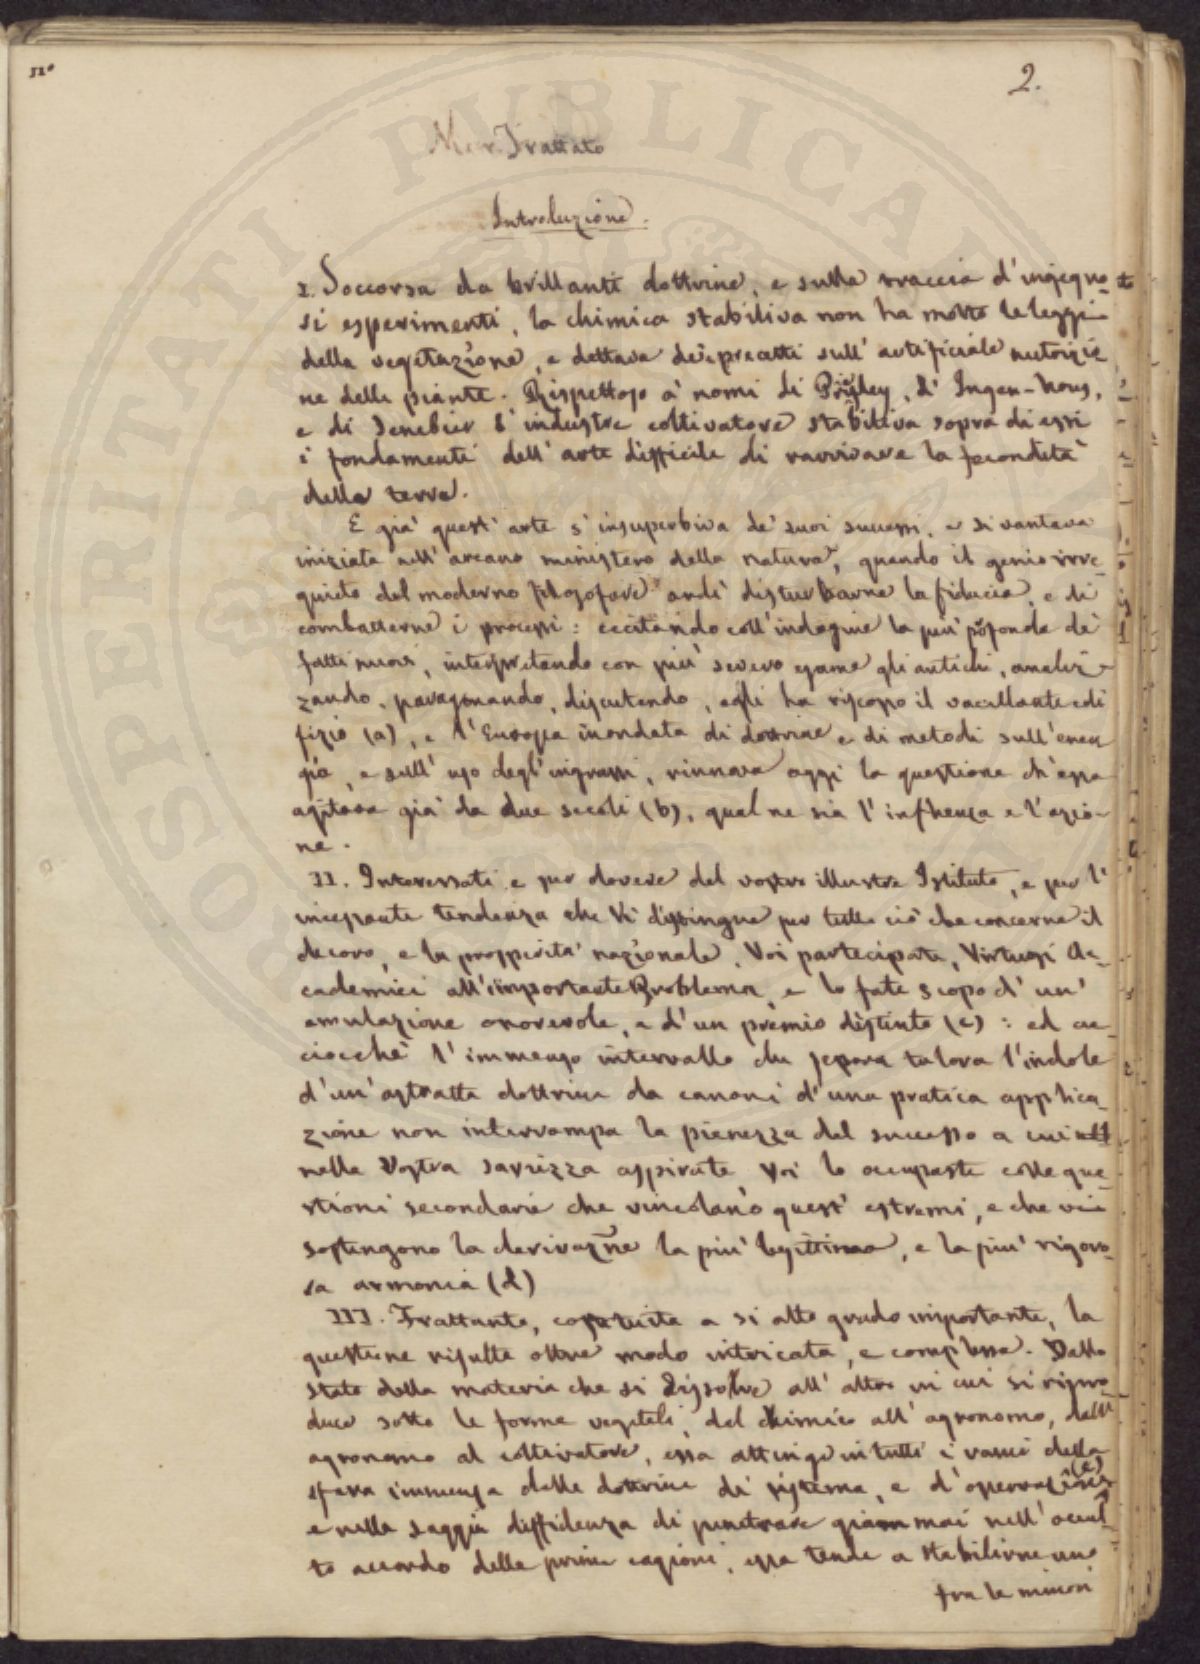 2.
Trattato
Introduzione.
I. Soccorsa da brillanti dottrine, e sulla traccia d'ingegno-
si esperimenti, la chimica stabiliva non ha molto le leggi
della vegetazione, e dettava de' precetti sull'artificiale nutrizio
ne delle piante. Rispettoso a' nomi di Prisley, d'Ingen-Hous,
e di Senebier l'industre coltivatore stabiliva sopra di essi
i fondamenti dell'arte difficile di ravvivare la fecondità
della terra.
E già quest'arte s'insuperbiva de' suoi successi, e si vantava
iniziata nell'arcano ministero della natura, quando il genio irre-
quieto del moderno filosofare andì disturbarne la fiducia, e di
combatterne i processi: eccitando coll'indagine la più profonda de'
fatti nuovi, interpretando con più severo esame gli antichi, analiz-
zando, paragonando, discutendo, egli ha riscosso il vacillante edi
fizio (a), e l'Europa inondata di dottrine e di metodi sull'ener
gia, e sull'uso degl'ingrassi, rinnova oggi la questione ch'essa
agitava già da due secoli (b), qual ne sia l'influenza e l'azio-
ne.
II. Interessati e per dovere del vostro illustre Istituto, e per l'
incessante tendenza che Vi distingue per tutto ciò che concerne il
decoro, e la prosperità nazionale, Voi partecipate, Virtuosi Ac-
cademici all'importante Problema, e lo fate scopo d'un'
emulazione onorevole, e d'un premio distinto (c): ed ac
ciocchè l'immenso intervallo che separa talora l'indole
d'un'astratta dottrina da canoni d'una pratica applica-
zione non interrompa la pienezza del successo a cui
nella Vostra saviezza aspirate Voi lo occupaste colle que-
stioni secondarie che vincolano quest'estremi, e che vi
sostengono la derivazne la più legittima, e la più rigoro-
sa armonia (d)
III. Frattanto, costituita a sì alto grado importante, la
questione risulta oltre modo intricata, e complessa. Dallo
stato della materia che si dissolve all'altro in cui si ripro
duce sotto le forme vegetali, dal chimico all'agronomo, dall'
agronomo al coltivatore, essa attinge in tutti i rami della
sfera immensa delle dottrine di sistema, e d'osservazione (e)
e nella saggia diffidenza di penetrare giammai nell'occul-
to accordo delle prime cagioni, essa tende a stabilirne uno
fra le minori